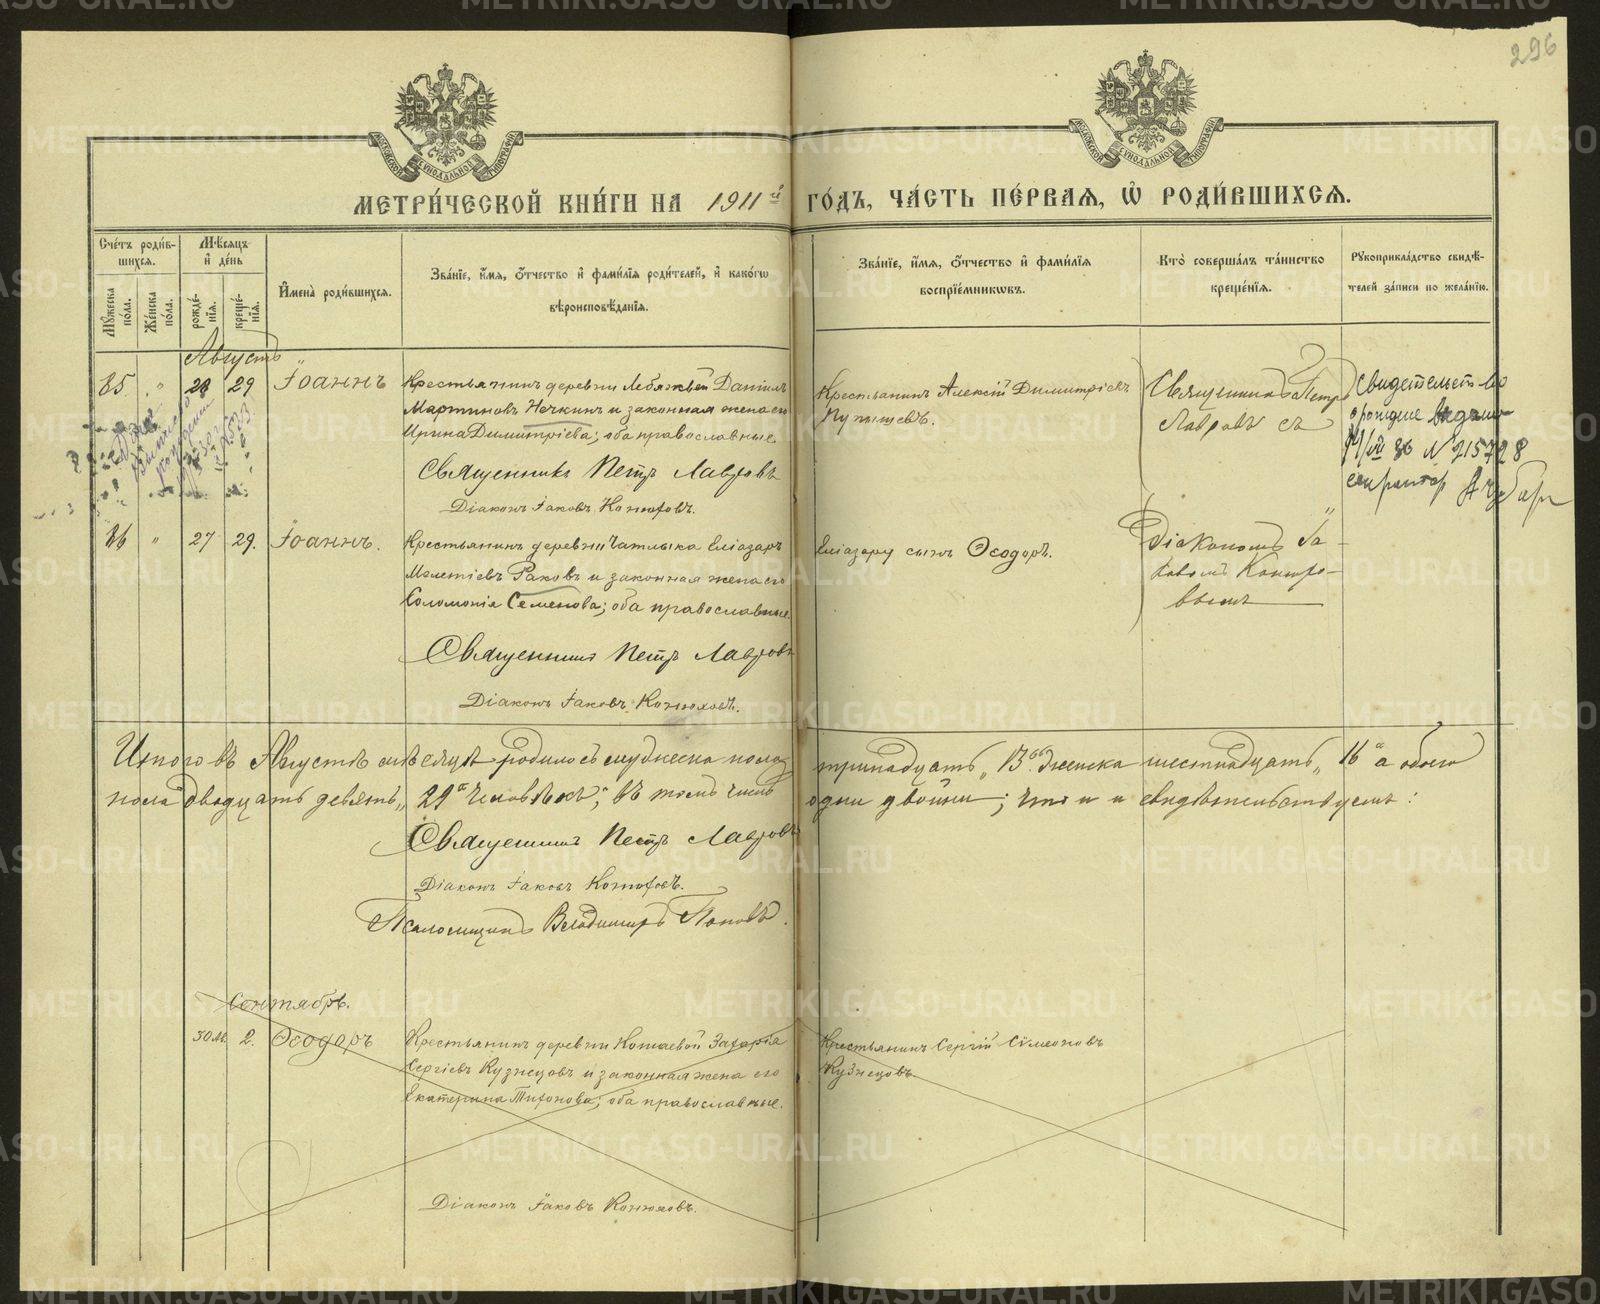 296
МОСКОВСКОЙ СѴНОДАЛЬНОЙ ТИПОГРАФІИ
МОСКОВСКОЙ СѴНОДАЛЬНОЙ ТИПОГРАФІИ
МЕТРИ́ЧЕСКОЙ КНИ́ГИ НА 1911й ГО́ДЪ, ЧА́СТЬ ПЕ́РВАЯ, Ѡ҆ РОДИ́ВШИХСѦ.
Сче́тъ роди́вшихсѧ.
Мꙋ́жеска по́ла.
Же́нска по́ла.
Мѣ́сѧцъ и҆ де́нь
рожде́нїѧ.
креще́нїѧ.
И҆мена̀ роди́вшихсѧ.
Зва́нїе, и҆́мѧ, ѻ҆́тчество и҆ фами́лїѧ роди́телей, и҆ како́гѡ
вѣроисповѣ́данїѧ.
Зва́нїе, и҆́мѧ, ѻ҆́тчество и҆ фами́лїѧ
воспрїе́мникѡвъ.
Кто̀ соверша́лъ та́инство
креще́нїѧ.
Рꙋкоприкла́дство свидѣ́телей за́писи по жела́нїю.
Августъ
35 " 28 29 Іоаннъ
Крестьянинъ деревни Лебяжьей Даніилъ
Мартиновъ Нечкинъ и законная жена его
Ирина Димитріева; оба православные
Священникъ Петръ Лавровъ
Діаконъ Іаковъ Конюховъ.
Крестьянинъ Алексій Димитріевъ
Священникъ Петръ
Лавровъ съ
Свидетельство
о рождение выдано
N 215728
секретарь
36 " 27 29. Іоаннъ.
Крестьянинъ деревни Чатлыка Еліазаръ
Мелетіевъ Раковъ и законная жена его
Соломонія Семенова; оба православные.
Священникъ Петръ Лавровъ
Діаконъ Іаковъ Конюховъ.
Еліазару сынъ Ѳеодоръ.
Діакономъ Іа-
ковомъ Конюхо-
вымъ
Итого въ Августѣ мѣсяцѣ родилось мужеска пола тринадцать „13" женска шестнадцать „16" а обоего
пола двадцать девять „29" человѣкъ; въ томъ числѣ одни двойни; что и и свидѣтельствуемъ:
Священникъ Петръ Лавровъ
Діаконъ Іаковъ Конюховъ.
Псаломщикъ Владимиръ Поповъ.
Сентябрь.
30 2. Ѳеодоръ
Крестьянинъ деревни Кошаевой Захарія
Сергіевъ Кузнецовъ и законная жена его
Екатерина Тихонова; оба православные.
Діаконъ Іаковъ Конюховъ.
Крестьянинъ Сергій Симеоновъ
Кузнецовъ.
METRIKI.GASO-URAL.RU